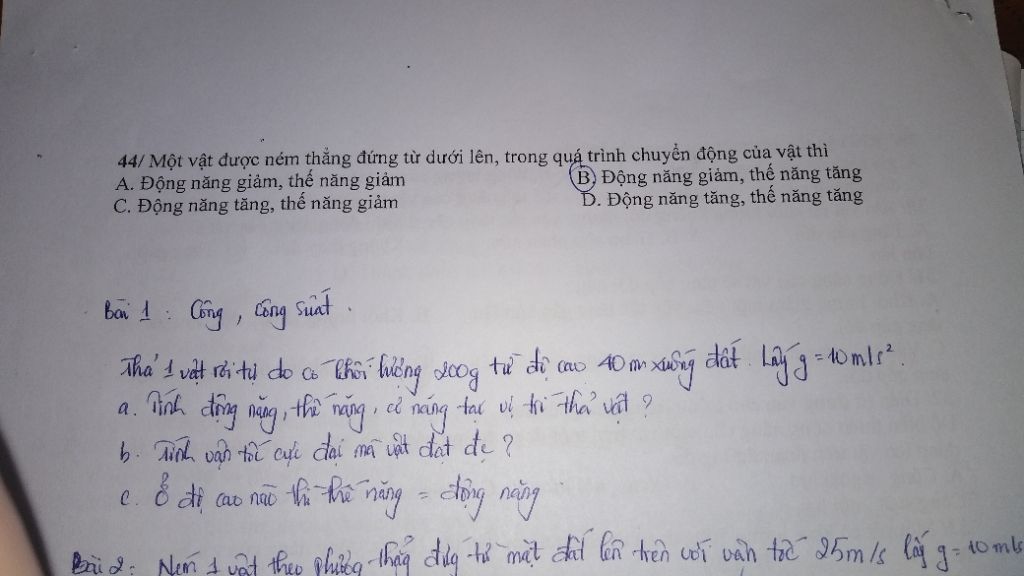 44/ Một vật được ném thẳng đứng từ dưới lên, trong quá trình chuyển động của vật thì
A. Động năng giảm, thế năng giảm
B. Động năng giảm, thế năng tăng
C. Động năng tăng, thế năng giảm
D. Động năng tăng, thế năng tăng
Bài 1 : Công, công suất.
Thả 1 vật rơi tự do có khối lượng 200g từ độ cao 40m xuống đất. Lấy g = 10m/s².
a. Tính động năng, thế năng, cơ năng tại vị trí thả vật ?
b. Tính vận tốc cực đại mà vật đạt đc ?
c. Ở độ cao nào thì thế năng = động năng
Bài 2: Ném 1 vật theo phương thẳng đứng từ mặt đất lên trên với vận tốc 25m/s lấy g = 10m/s